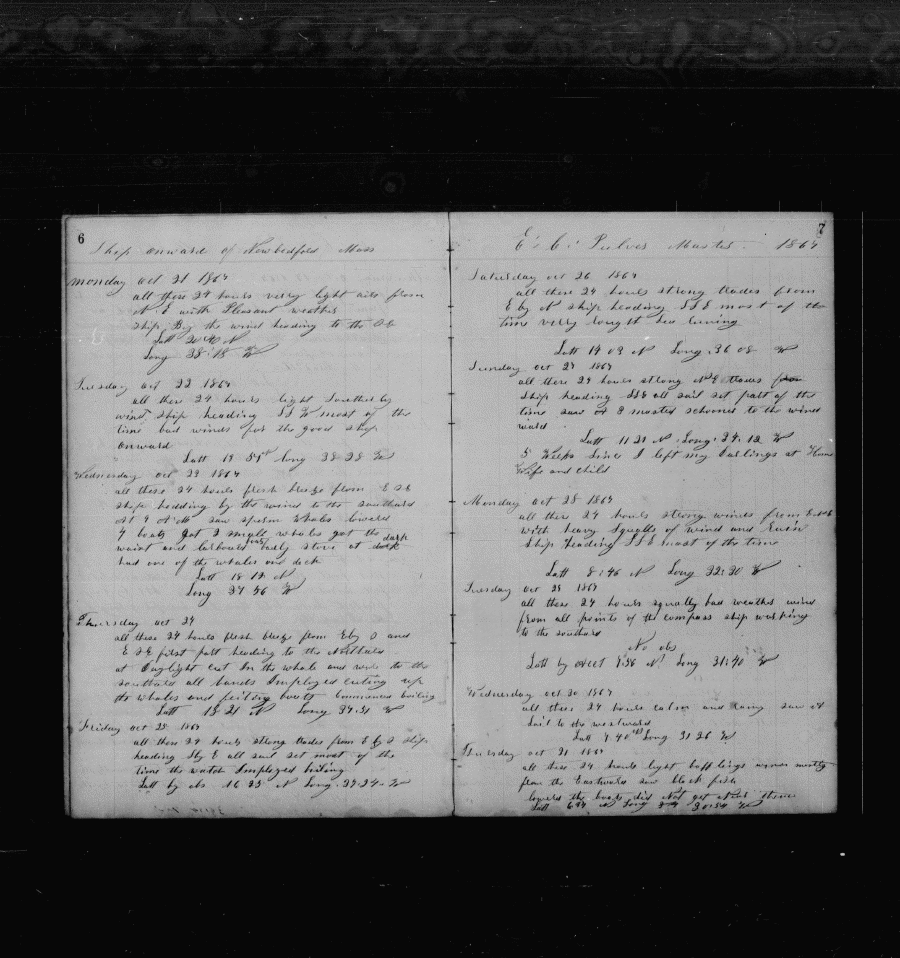 6
Ship onward of Newbedford Mass
monday oct 21 1867
all these 24 hours verry light airs from
N E with Pleasant weather
Ship By the wind heading to the
Latt 20 40 N
Long 38 18 W
Tuesday oct 22 1867
all these 24 hours light Souther by
wind ship heading S S W most of the
time bad winds for the good ship
onward
Latt 19 51 Long 38 28 W
Wednesday oct 23 1867
all these 24 hours fresh breeze from E S E
ship hedding by the wind to the southard
at 9 A M saw sperm whales lowerd
4 boats got 2 small whales got the
waist and larboard boats badly stove at dark
had one of the whales on deck
Latt 18 12 N
Long 37 56 W
Thursday oct 24
all these 24 hours fresh breeze from E by S and
E S E first part heading to the Northard
at Daylight cut In the whale and wore to the
southard all hands Imployed cuting up
the whales and fixing boats commenced boiling
Latt 18 21 N Long 37 31 W
Friday oct 25 1867
all these 24 hours strong trades from E by S ship
heading S by E all sail set most of the
time the watch Imployed boiling
Latt by obs 16 35 N Long 37 24 W
7
E. C. Pulver Master 1867
Saturday oct 26 1867
all these 24 hours strong trades from
E by N ship heading S S E most of the
time verry rought Sea Runing
Latt 14 03 N Long 36 08 W
Sunday oct 27 1867
all these 24 hours strong N E trades from
ship heading S S E all sail set part of the
time saw a 3 masted schooner to the wind
ward
Latt 11 21 N Long 34 12 W
5 Weeks Since I left my Darlings at Home
Wife and child
Monday oct 28 1867
all these 24 hours strong winds from
with heavy Squalls of wind and Rain
Ship heading S S E most of the time
Latt 8 46 N Long 32 30 W
Tuesday oct 29 1867
all these 24 hours squally bad weather wind
from all points of the compass ship working
to the southard
No obs
Latt by acct 7 56 N Long 31 40 W
Wednesday oct 30 1867
all these 24 hours calm and rainy saw a
Sail to the westward
Latt 7 40 Long 31 26 W
Thursday oct 31 1867
all these 24 hours light bafflings winds mostly
from the Eastward saw black fish
lowerd the boats did Not get
Latt N Long 30 54 W